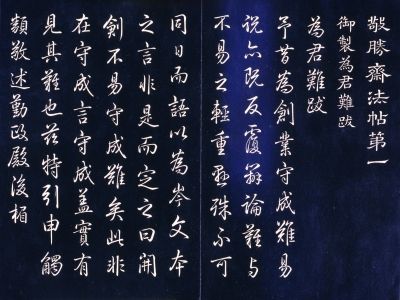 敬勝齋法帖第一
御製為君難跋
為君難跋
予昔為創業守成難易
說亦既反覆辨論難與
不易之輕重懸殊不可
同日而語以為岑文本
之言非是而定之曰開
創不易守成難矣此非
在守成言守成蓋實有
見其難也茲特引申觸
類敬述勤政殿後楣